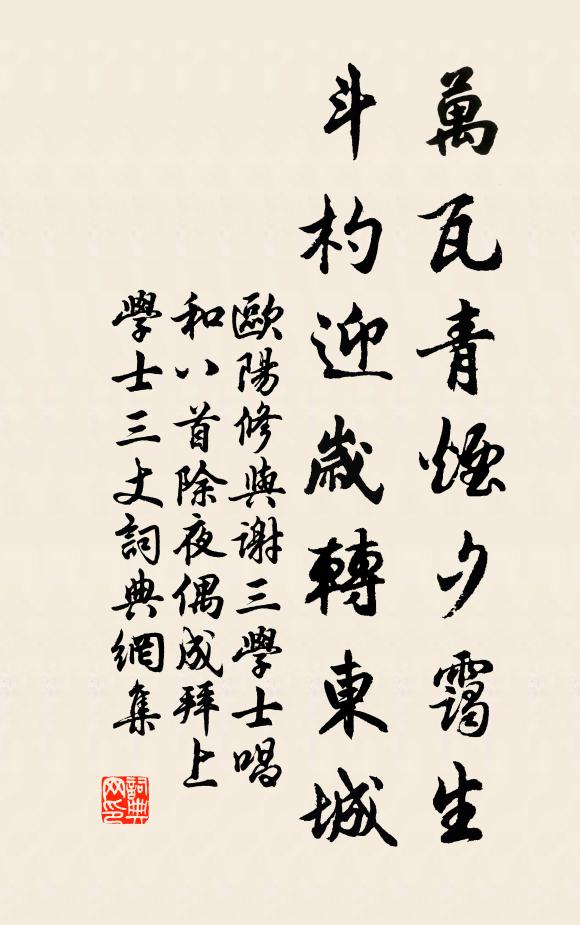 萬瓦青煙夕靄生
斗杓迎歲轉東城
歐陽修與謝三學士唱
和八首除夜偶成拜上
學士三丈詞典網集
詞典
网印